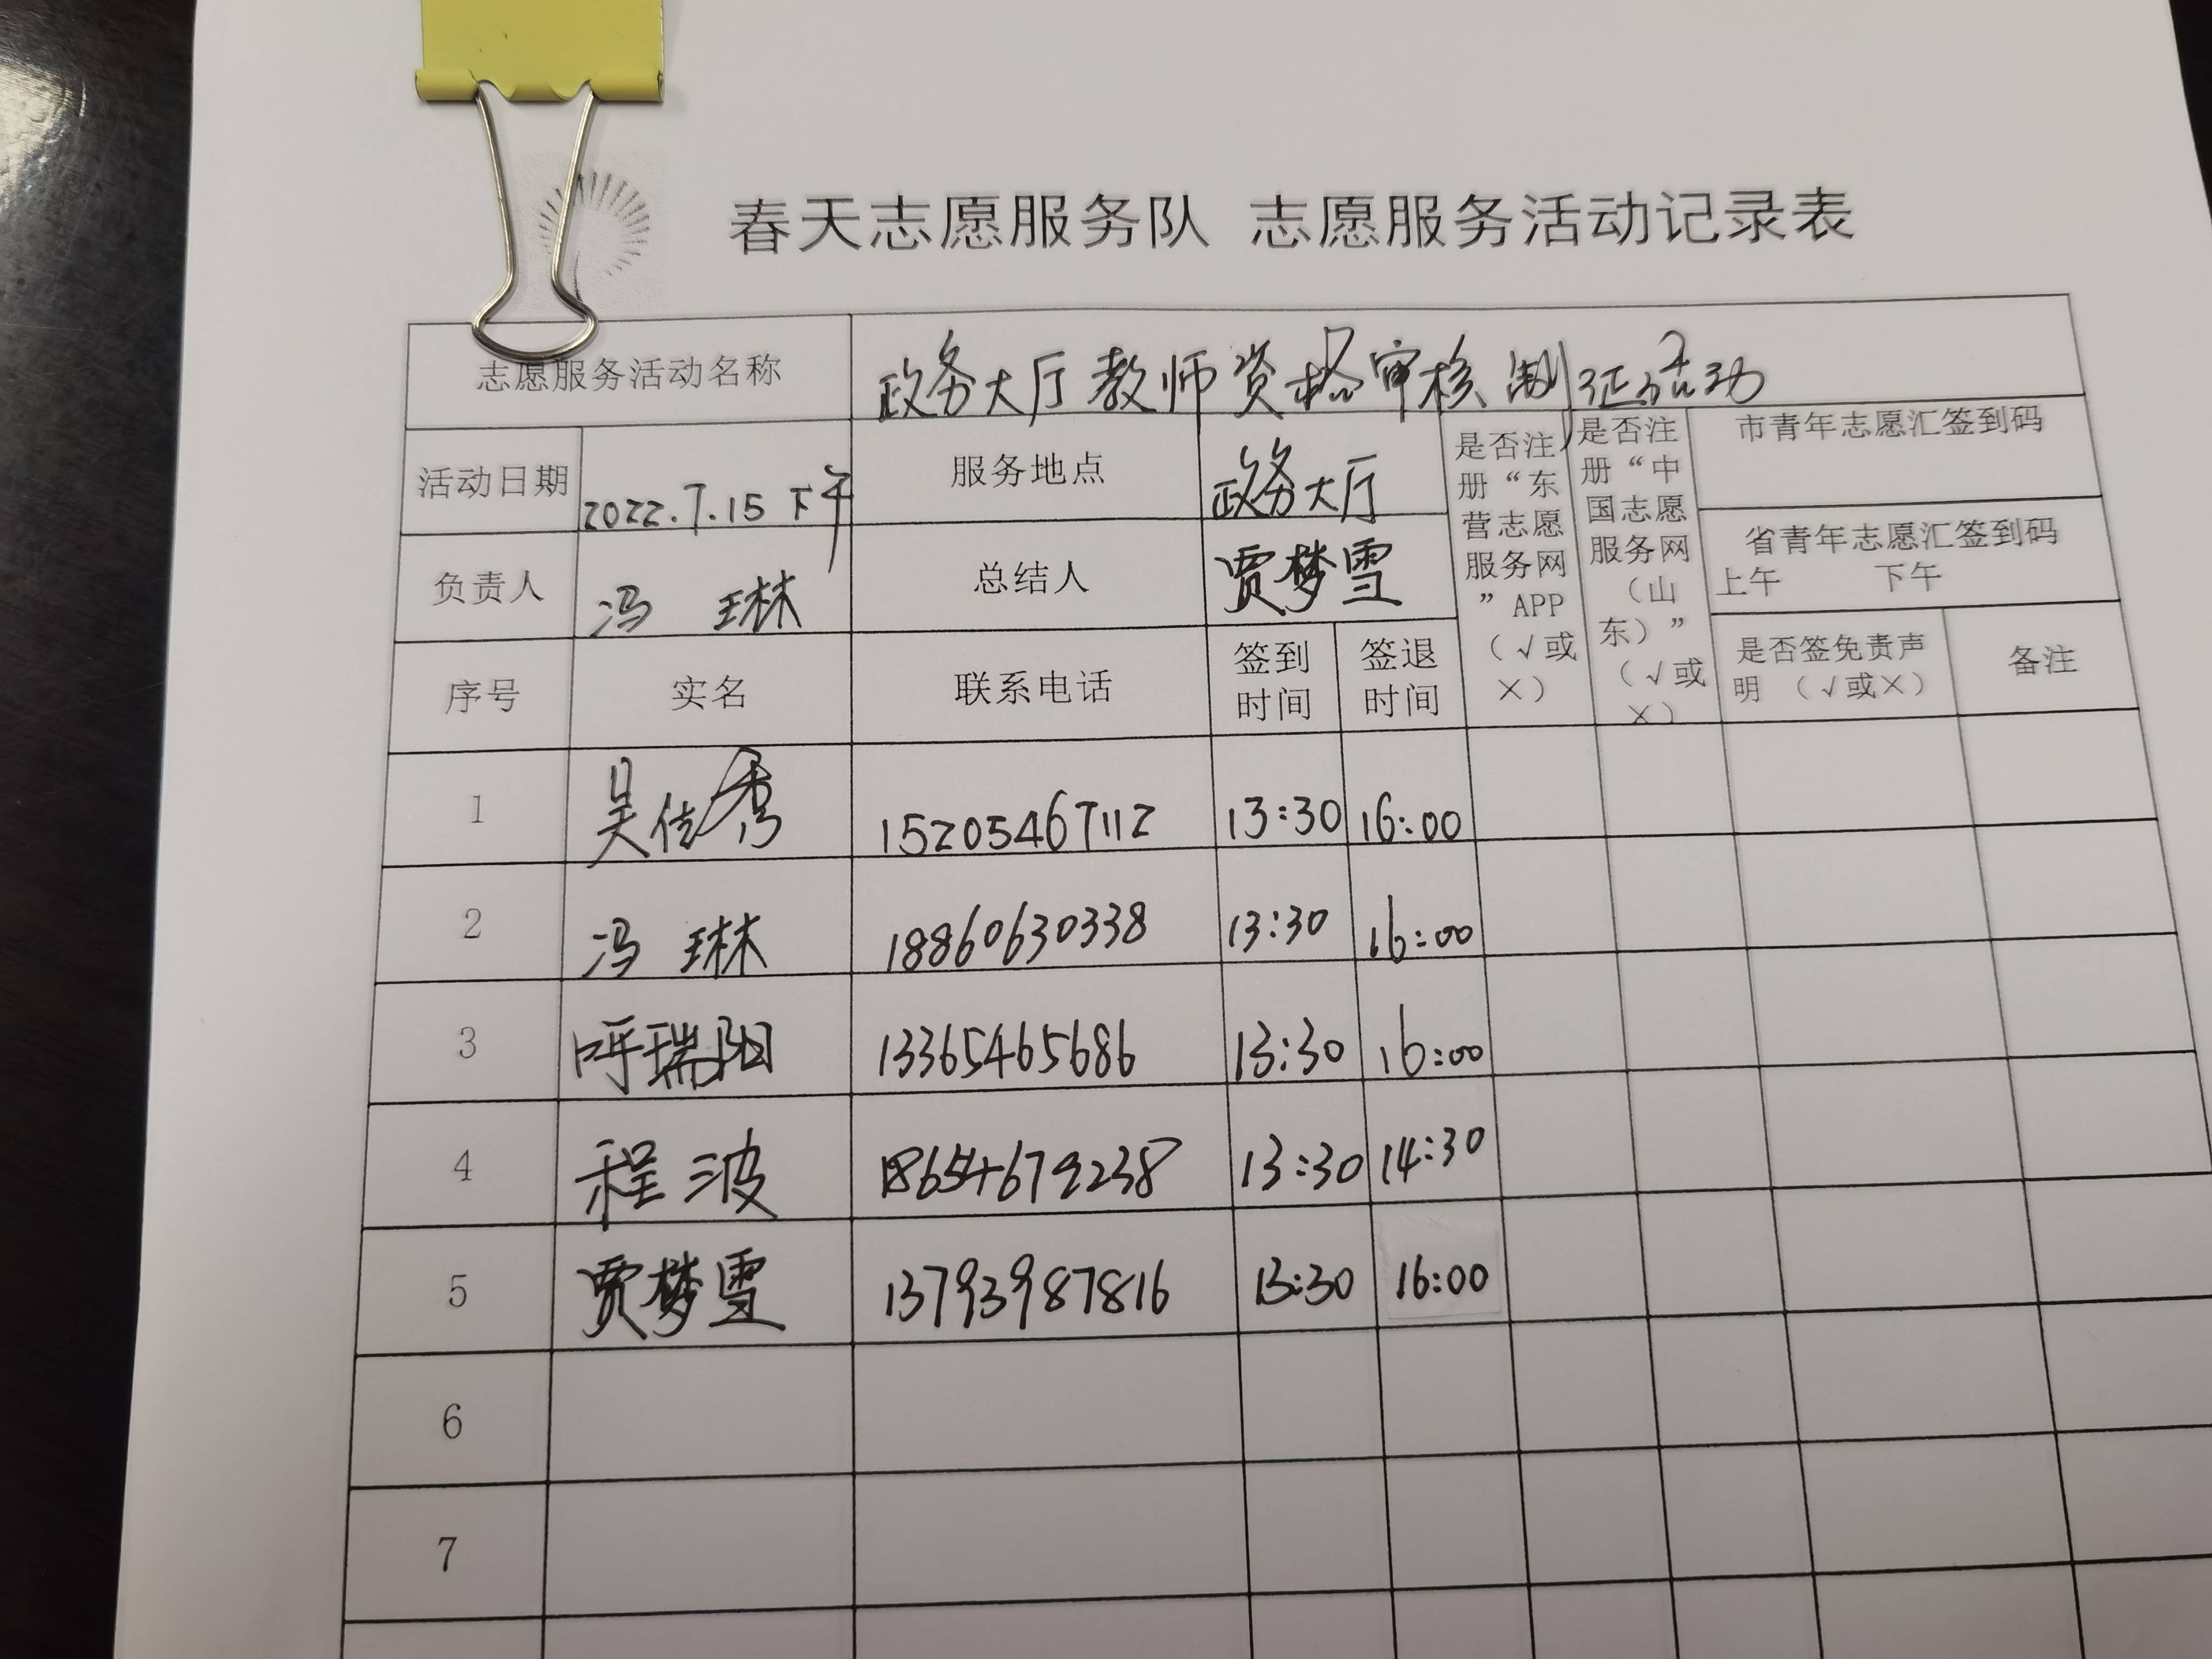 春天志愿服务队 志愿服务活动记录表
志愿服务活动名称 政务大厅教师资格审核制证活动
活动日期 2022.7.15 下午 服务地点 政务大厅
负责人 冯 琳 总结人 贾梦雪
是否注册“东营志愿服务网”APP（√或×）
是否注册“中国志愿服务网（山东）”（√或×）
市青年志愿汇签到码
省青年志愿汇签到码
上午 下午
序号 实名 联系电话 签到时间 签退时间 是否签免责声明（√或×） 备注
1 吴佳秀 15205467112 13:30 16:00
2 冯 琳 18860630338 13:30 16:00
3 呼瑞阳 13365465686 13:30 16:00
4 程 波 18654679238 13:30 14:30
5 贾梦雪 13793987816 13:30 16:00
6
7